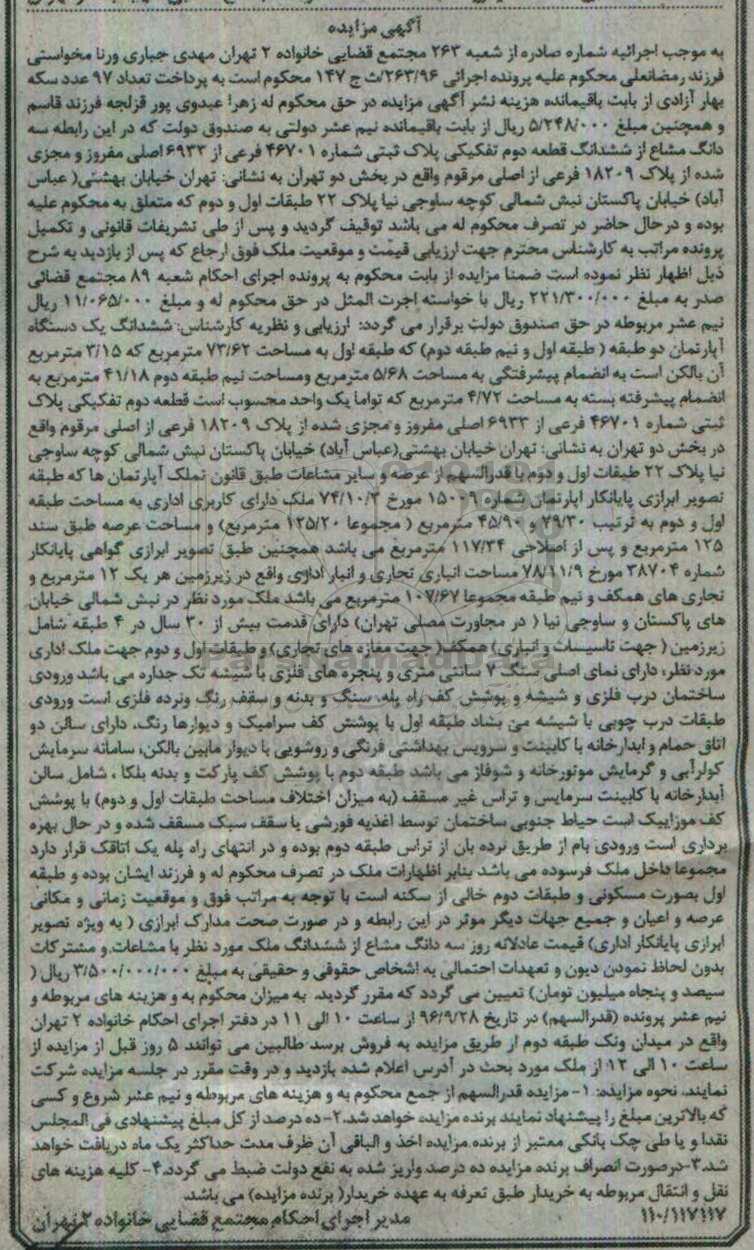 آگهی مزایده
به موجب اجرائیه شماره صادره از شعبه ۲۶۳ مجتمع قضایی خانواده ۲ تهران مهدی جباری ورنا مخواستی
فرزند رمضانعلی محکوم علیه پرونده اجرائی ۲۶۳/۹۶/ث ج ۱۴۷ محکوم است به پرداخت تعداد ۹۷ عدد سکه
بهار آزادی از بابت باقیمانده هزینه نشر آگهی مزایده در حق محکوم له زهرا عبدوی پور قزلجه فرزند قاسم
و همچنین مبلغ ۵/۲۴۸/۰۰۰ ریال از بابت باقیمانده نیم عشر دولتی به صندوق دولت که در این رابطه سه
دانگ مشاع از ششدانگ قطعه دوم تفکیکی پلاک ثبتی شماره ۴۶۷۰۱ فرعی از ۶۹۳۳ اصلی مفروز و مجزی
شده از پلاک ۱۸۲۰۹ فرعی از اصلی مرقوم واقع در بخش دو تهران به نشانی: تهران خیابان بهشتی( عباس
آباد) خیابان پاکستان نبش شمالی کوچه ساوجی نیا پلاک ۲۲ طبقات اول و دوم که متعلق به محکوم علیه
بوده و درحال حاضر در تصرف محکوم له می باشد توقیف گردید و پس از طی تشریفات قانونی و تکمیل
پرونده مراتب به کارشناس محترم جهت ارزیابی قیمت و موقعیت ملک فوق ارجاع که پس از بازدید به شرح
ذیل اظهار نظر نموده است ضمنا مزایده از بابت محکوم به پرونده اجرای احکام شعبه ۸۹ مجتمع قضائی
صدر به مبلغ ۲۲۱/۳۰۰/۰۰۰ ریال با خواسته اجرت المثل در حق محکوم له و مبلغ ۱۱/۰۶۵/۰۰۰ ریال
نیم عشر مربوطه در حق صندوق دولت برقرار می گردد: ارزیابی و نظریه کارشناس: ششدانگ یک دستگاه
آپارتمان دو طبقه ( طبقه اول و نیم طبقه دوم) که طبقه اول به مساحت ۷۳/۶۲ مترمربع که ۳/۱۵ مترمربع
آن بالکن است به انضمام پیشرفتگی به مساحت ۵/۶۸ مترمربع ومساحت نیم طبقه دوم ۴۱/۱۸ مترمربع به
انضمام پیشرفته بسته به مساحت ۴/۷۲ مترمربع که تواما یک واحد محسوب است قطعه دوم تفکیکی پلاک
ثبتی شماره ۴۶۷۰۱ فرعی از ۶۹۳۳ اصلی مفروز و مجزی شده از پلاک ۱۸۲۰۹ فرعی از اصلی مرقوم واقع
در بخش دو تهران به نشانی: تهران خیابان بهشتی(عباس آباد) خیابان پاکستان نبش شمالی کوچه ساوجی
نیا پلاک ۲۲ طبقات اول و دوم با قدرالسهم از عرصه و سایر مشاعات طبق قانون تملک آپارتمان ها که طبقه
تصویر ابرازی پایانکار آپارتمان شماره ۱۵۰۰۹ مورخ ۷۴/۱۰/۳ ملک دارای کاربری اداری به مساحت طبقه
اول و دوم به ترتیب ۷۹/۳۰ و ۴۵/۹۰ مترمربع ( مجموعا ۱۲۵/۲۰ مترمربع) و مساحت عرصه طبق سند
۱۲۵ مترمربع و پس از اصلاحی ۱۱۷/۳۴ مترمربع می باشد همچنین طبق تصویر ابرازی گواهی پایانکار
شماره ۳۸۷۰۴ مورخ ۷۸/۱۱/۹ مساحت انباری تجاری و انبار اداری واقع در زیرزمین هر یک ۱۲ مترمربع و
تجاری های همکف و نیم طبقه مجموعا ۱۰۷/۶۷ مترمربع می باشد ملک مورد نظر در نبش شمالی خیابان
های پاکستان و ساوجی نیا ( در مجاورت مصلی تهران) دارای قدمت بیش از ۳۰ سال در ۴ طبقه شامل
زیرزمین ( جهت تاسیسات و انباری) همکف( جهت مغازه های تجاری) و طبقات اول و دوم جهت ملک اداری
مورد نظر، دارای نمای اصلی سنگ ۷ سانتی متری و پنجره های فلزی با شیشه تک جداره می باشد ورودی
ساختمان درب فلزی و شیشه و پوشش کف راه پله، سنگ و بدنه و سقف رنگ ونرده فلزی است ورودی
طبقات درب چوبی با شیشه می بشاد طبقه اول با پوشش کف سرامیک و دیوارها رنگ، دارای سالن دو
اتاق حمام و ابدارخانه با کابینت و سرویس بهداشتی فرنگی و روشویی با دیوار مابین بالکن، سامانه سرمایش
کولرآبی و گرمایش موتورخانه و شوفاژ می باشد طبقه دوم با پوشش کف پارکت و بدنه بلکا ، شامل سالن
آبدارخانه با کابینت سرمایس و تراس غیر مسقف (به میزان اختلاف مساحت طبقات اول و دوم) با پوشش
کف موزاییک است حیاط جنوبی ساختمان توسط اغذیه فورشی با سقف سبک مسقف شده و در حال بهره
برداری است ورودی بام از طریق نرده بان از تراس طبقه دوم بوده و در انتهای راه پله یک اتاقک قرار دارد
مجموعا داخل ملک فرسوده می باشد بنابر اظهارات ملک در تصرف محکوم له و فرزند ایشان بوده و طبقه
اول بصورت مسکونی و طبقات دوم خالی از سکنه است با توجه به مراتب فوق و موقعیت زمانی و مکانی
عرصه و اعیان و جمیع جهات دیگر موثر در این رابطه و در صورت صحت مدارک ابرازی ( به ویژه تصویر
ابرازی پایانکار اداری) قیمت عادلانه روز سه دانگ مشاع از ششدانگ ملک مورد نظر با مشاعات و مشترکات
بدون لحاظ نمودن دیون و تعهدات احتمالی به اشخاص حقوقی و حقیقی به مبلغ ۳/۵۰۰/۰۰۰/۰۰۰ ریال (
سیصد و پنجاه میلیون تومان) تعیین می گردد که مقرر گردید. به میزان محکوم به و هزینه های مربوطه و
نیم عشر پرونده (قدرالسهم) در تاریخ ۹۶/۹/۲۸ از ساعت ۱۰ الی ۱۱ در دفتر اجرای احکام خانواده ۲ تهران
واقع در میدان ونک طبقه دوم از طریق مزایده به فروش برسد طالبین می توانند ۵ روز قبل از مزایده از
ساعت ۱۰ الی ۱۲ از ملک مورد بحث در آدرس اعلام شده بازدید و در وقت مقرر در جلسه مزایده شرکت
نمایند. نحوه مزایده: ۱- مزایده قدرالسهم از جمع محکوم به و هزینه های مربوطه و نیم عشر شروع و کسی
که بالاترین مبلغ را پیشنهاد نمایند برنده مزایده خواهد شد.۲- ده درصد از کل مبلغ پیشنهادی فی المجلس
نقدا و یا طی چک بانکی معتبر از برنده مزایده اخذ و الباقی آن ظرف مدت حداکثر یک ماه دریافت خواهد
شد.۳-درصورت انصراف برنده مزایده ده درصد واریز شده به نفع دولت ضبط می گردد.۴- کلیه هزینه های
نقل و انتقال مربوطه به خریدار طبق تعرفه به عهده خریدار( برنده مزایده) می باشد.
۱۱۰/۱۱۷۱۱۷ مدیر اجرای احکام مجتمع قضایی خانواده ۲ تهران
ParsNamadData